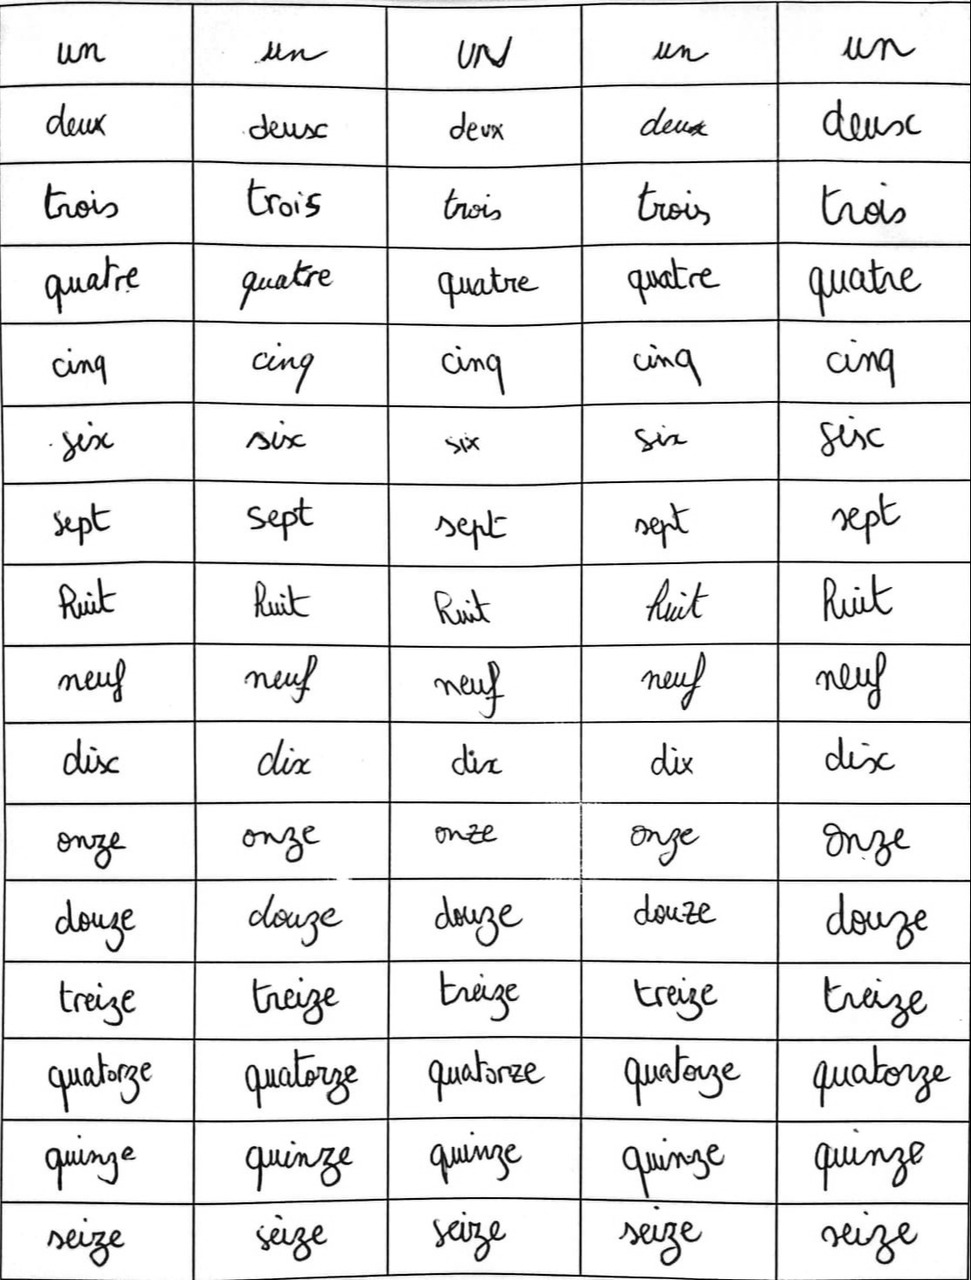 un un un un un
deux deux deux deux deux
trois trois trois trois trois
quatre quatre quatre quatre quatre
cinq cinq cinq cinq cinq
six six six six six
sept sept sept sept sept
huit huit huit huit huit
neuf neuf neuf neuf neuf
dix dix dix dix dix
onze onze onze onze onze
douze douze douze douze douze
treize treize treize treize treize
quatorze quatorze quatorze quatorze quatorze
quinze quinze quinze quinze quinze
seize seize seize seize seize